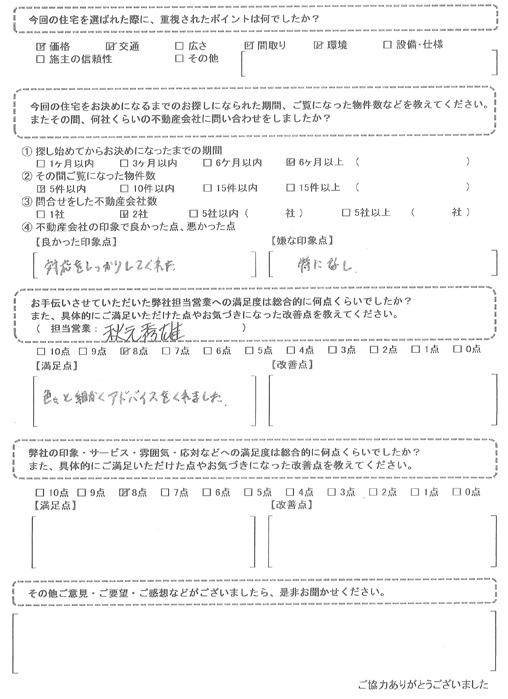 今回の住宅を選ばれた際に、重視されたポイントは何でしたか？
☑価格 ☑交通 □広さ ☑間取り ☑環境 □設備・仕様
□施主の信頼性 □その他
今回の住宅をお決めになるまでのお探しになられた期間、ご覧になった物件数などを教えてください。
またその間、何社くらいの不動産会社に問い合わせをしましたか？
① 探し始めてからお決めになったまでの期間
□1ヶ月以内 □3ヶ月以内 □6ケ月以内 ☑6ヶ月以上 （ ）
② その間ご覧になった物件数
☑5件以内 □10件以内 □15件以内 □15件以上 （ ）
③ 問合せをした不動産会社数
□1社 ☑2社 □5社以内（ 社 ） □5社以上 （ 社 ）
④ 不動産会社の印象で良かった点、悪かった点
【良かった印象点】 【嫌な印象点】
対応をしっかりしてくれた 特になし
お手伝いさせていただいた弊社担当営業への満足度は総合的に何点くらいでしたか？
また、具体的にご満足いただけた点やお気づきになった改善点を教えてください。
（ 担当営業： 秋元秀雄 ）
□10点 □9点 ☑8点 □7点 □6点 □5点 □4点 □3点 □2点 □1点 □0点
【満足点】 【改善点】
色々と細かくアドバイスをくれました。
弊社の印象・サービス・雰囲気・応対などへの満足度は総合的に何点くらいでしたか？
また、具体的にご満足いただけた点やお気づきになった改善点を教えてください。
□10点 □9点 ☑8点 □7点 □6点 □5点 □4点 □3点 □2点 □1点 □0点
【満足点】 【改善点】
その他ご意見・ご要望・ご感想などがございましたら、是非お聞かせください。
ご協力ありがとうございました